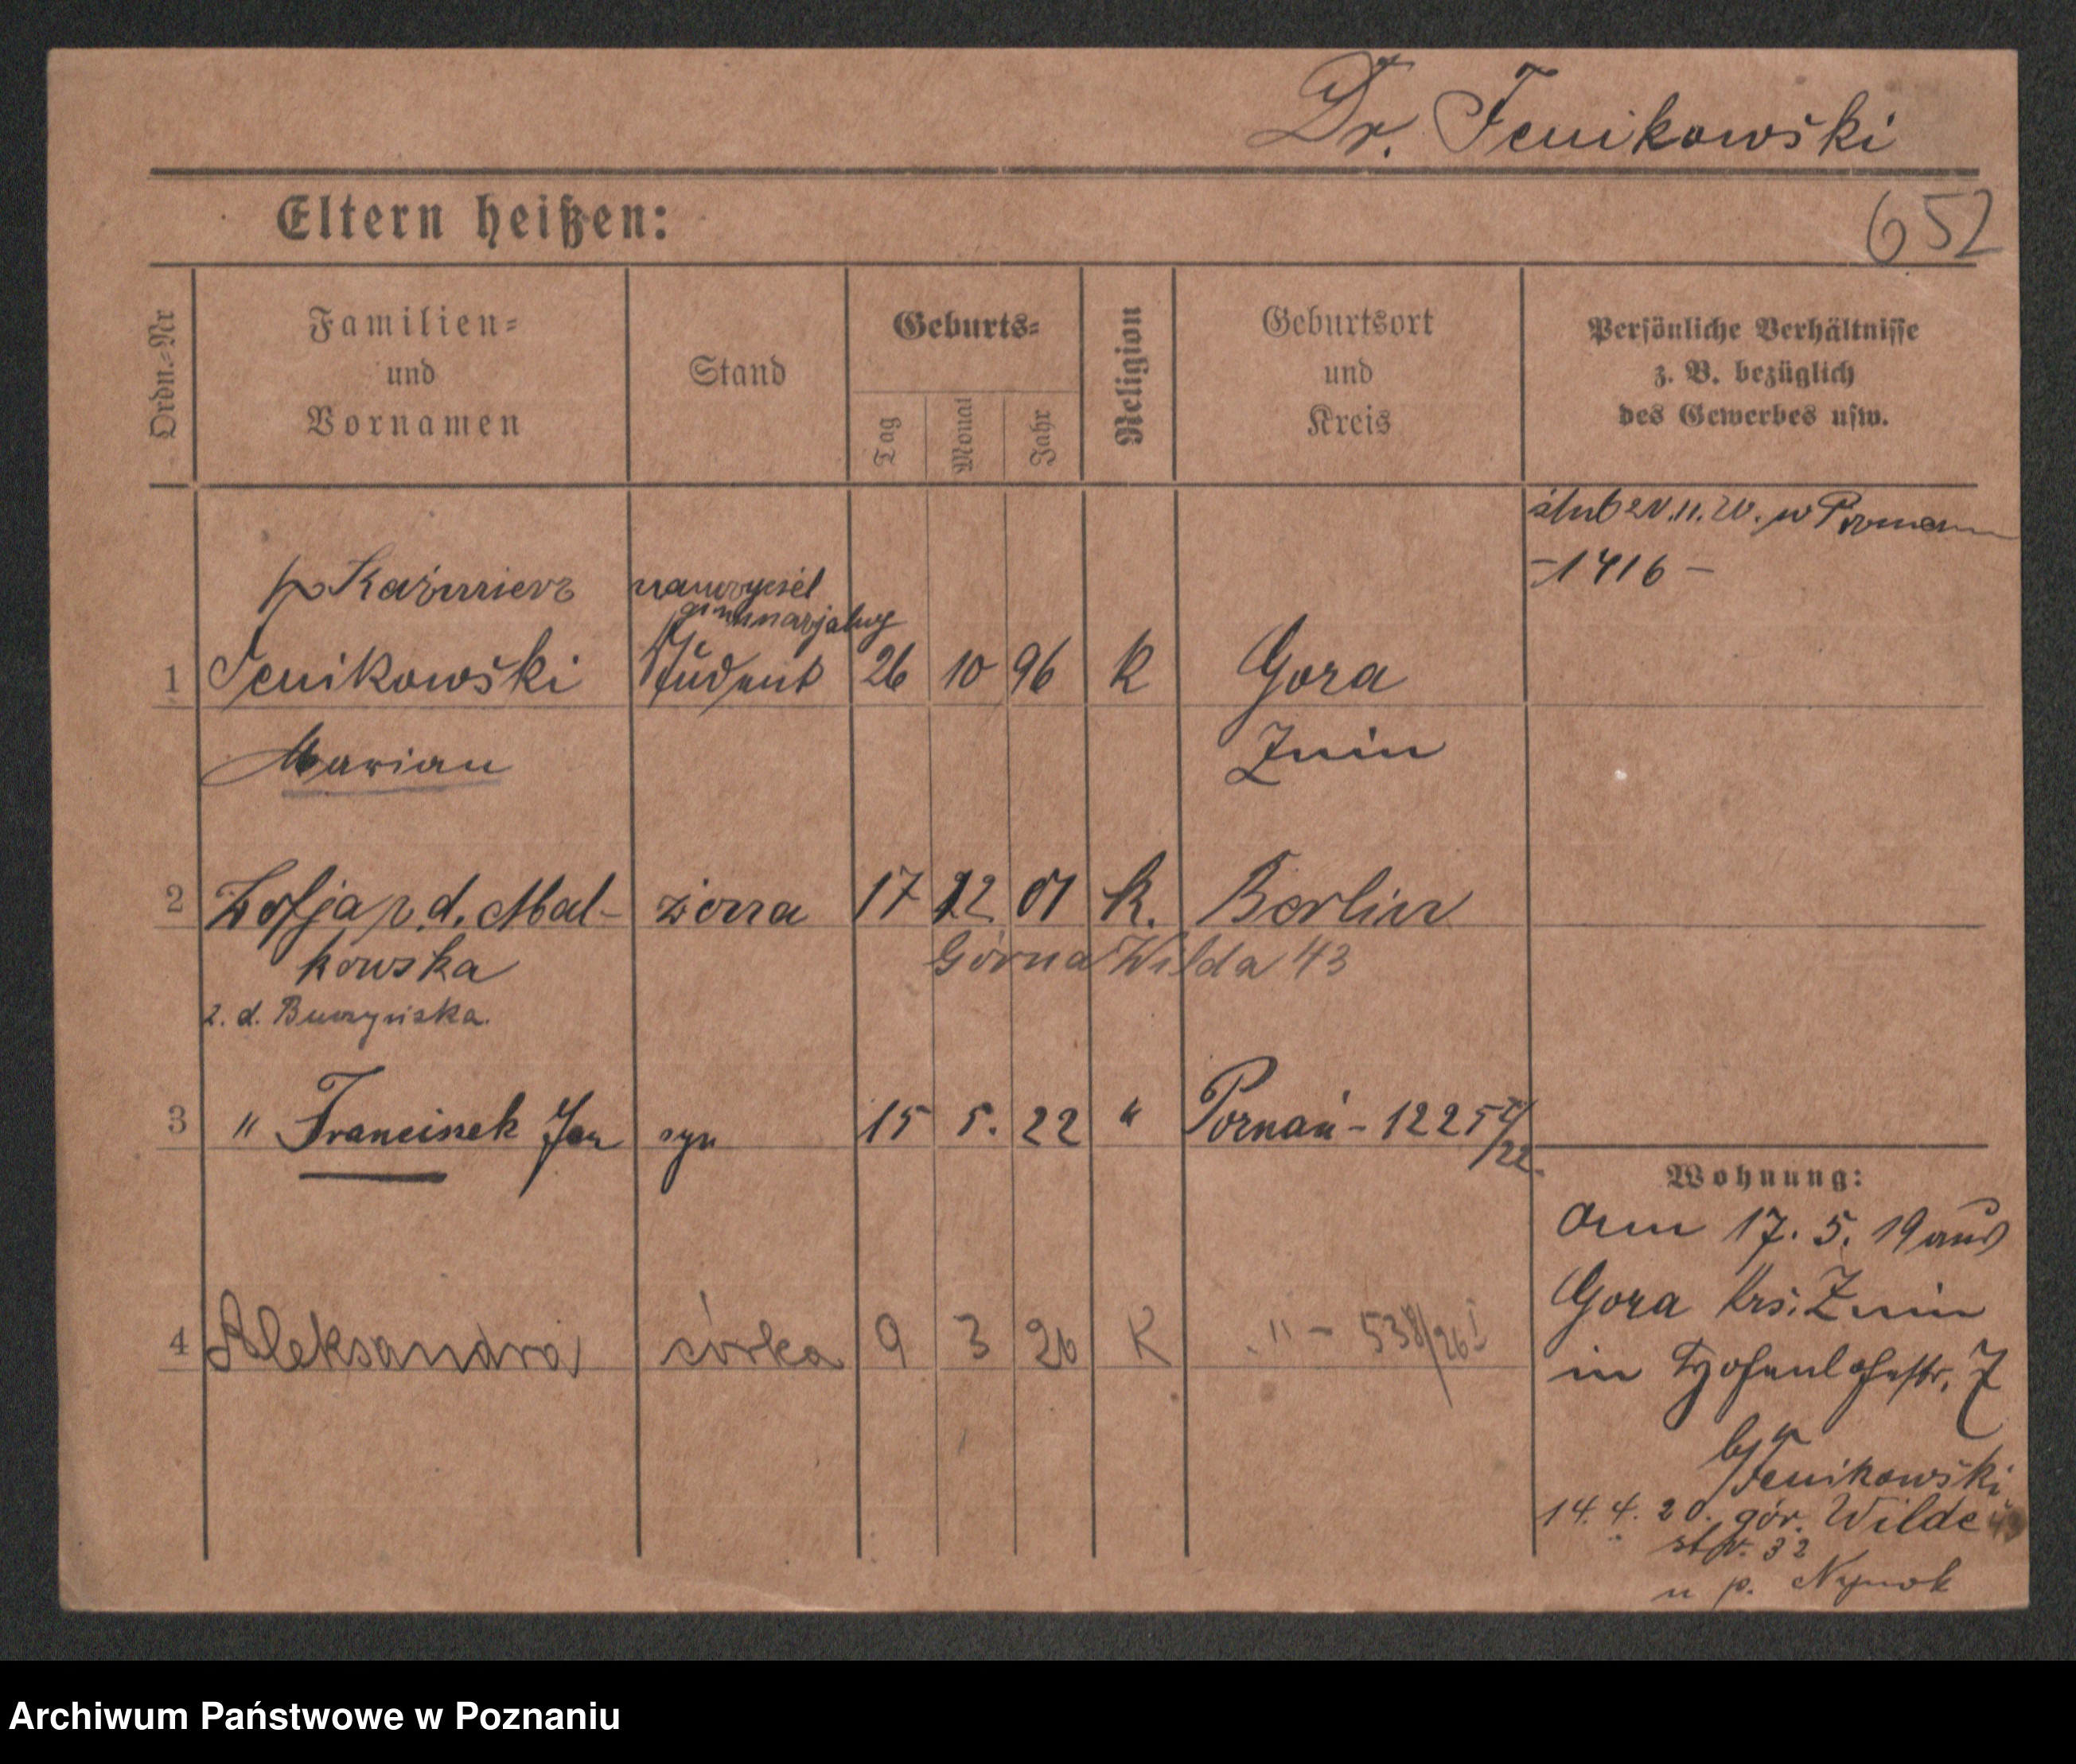 Dr. Fenikowski
Eltern heißen:
652
Ordn.-Nr
Familien-
und
Vornamen
Stand
Geburts-
Tag
Monat
Jahr
Religion
Geburtsort
und
Kreis
Persönliche Verhältnisse
z. B. bezüglich
des Gewerbes usw.
ślub 20.11.20. w
-1416-
Kaźmierz
nauczyciel
gimnazjalny
1 Fenikowski Student 26 10 96 K Gora
Marian Znin
2 Zofja p. d. Mal- żona 17 12 01 K. Berlin
kowska Górna Wilda 43
2. d.
3 " Franciszek Jan syn 15 5. 22 " Poznań - 1225 I/22.
4 Aleksandra córka 9 3 26 K " - 538/26 I
Wohnung:
17. 5. 19 aus
Gora Krs. Znin
in Hohenlohestr. 7
b/
Fenikowski
14. 4. 20. gór. Wilde
str. 32
u p.
Archiwum Państwowe w Poznaniu